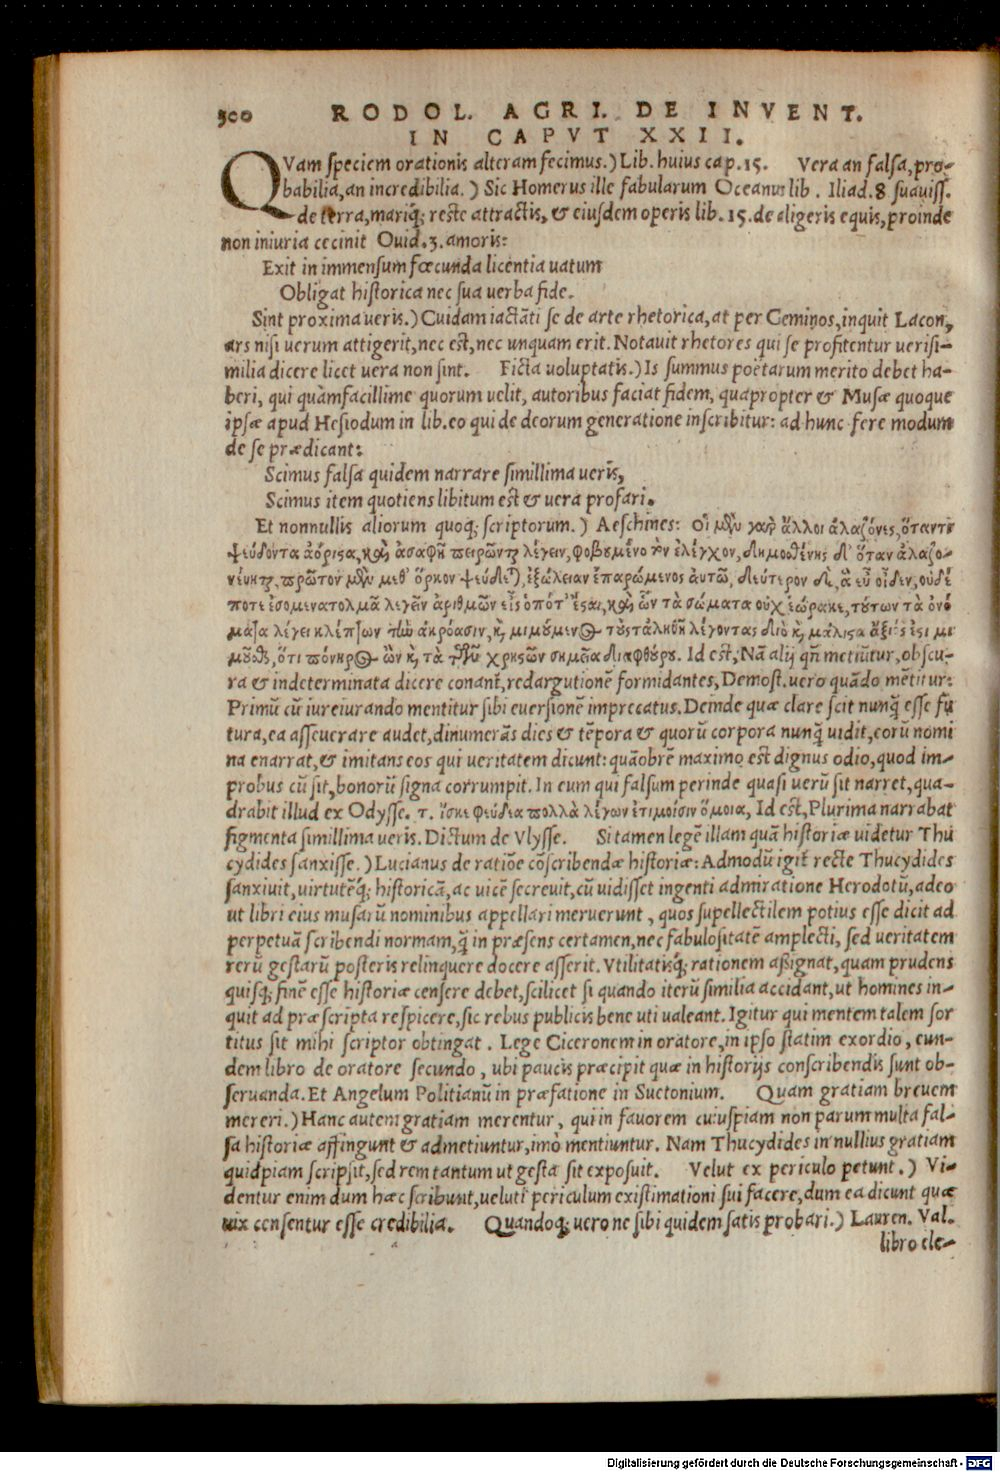 300 RODOL. AGRI. DE INVENT.
IN CAPVT XXII.
QVam speciem orationis alteram fecimus.) Lib. huius cap. 15. Vera an falsa, pro-
babilia, an incredibilia.) Sic Homerus ille fabularum Oceanus lib. Iliad. 8 suauiss.
de terra, mariq; reste attractis, & eiusdem operis lib. 15. de aligeris equis, proinde
non iniuria cecinit Ouid. 3. amoris:
Exit in immensum fœcunda licentia uatum
Obligat historica nec sua uerba fide.
Sint proxima ueris.) Cuidam iactāti se de arte rhetorica, at per Geminos, inquit Lacon,
ars nisi uerum attigerit, nec est, nec unquam erit. Notauit rhetores qui se profitentur uerisi-
milia dicere licet uera non sint. Ficta uoluptatis.) Is summus poëtarum merito debet ha-
beri, qui quàm facillime quorum uelit, autoribus faciat fidem, quapropter & Musæ quoque
ipsæ apud Hesiodum in lib. eo qui de deorum generatione inscribitur: ad hunc fere modum
de se prædicant:
Scimus falsa quidem narrare simillima ueris,
Scimus item quotiens libitum est & uera profari.
Et nonnullis aliorum quoq; scriptorum.) Aeschines: Οἱ μὲν γαρ ἄλλοι ἀλαζόνες, ὅταν τι
ψεύδονται ἀόριστα, καὶ ἀσαφῆ πειρῶνται λέγειν, φοβουμένοι τὸν ἐλέγχον, δημοσθένης δ' ὅταν ἀλαζο-
νέυηται, πρῶτον μὲν μεθ' ὅρκον ψεύδεται, ἐξώλειαν ἐπαρώμενος αὑτῶ, δεύτερον δὲ, ἃ εὖ οἶδεν, οὐδέ
ποτε ἐσομενα τολμᾶ λεγεῖν ἀριθμῶν εἰς ὁπότ' ἔσται, καὶ ὧν τὰ σώματα οὐχ ἑώρακε, τούτων τὰ ὀνό
ματα λέγει κλέπτων τὴν ἀκρόασιν, κὶ μιμούμενος τοὺς τἀληθῆ λέγοντας διὸ κὶ μάλιστα ἄξιός ἐστι μι
μούσθαι, ὅτι πόνηρος ὢν κὶ τὰ τῶν χρηστῶν σημεῖα διαφθείρου. Id est; Nā alij qñ metiūtur, obscu-
ra & indeterminata dicere conant̄, redargutionē formidantes, Demost. uero quādo mētitur:
Primū cū iureiurando mentitur sibi euersionē imprecatus. Deinde quæ clare scit nunq̄ esse fū
tura, ea asseuerare audet, dinumerās dies & tēpora & quorū corpora nunq̄ uidit, eorū nomi
na enarrat, & imitans eos qui ueritatem dicunt: quāobrē maximo est dignus odio, quod im-
probus cū sit, bonorū signa corrumpit. In eum qui falsum perinde quasi uerū sit narret, qua-
drabit illud ex Odysse. τ. ἴσκε ψεύδια πολλὰ λέγων ἐτιμοίσιν ὅμοια, Id est, Plurima narrabat
figmenta simillima ueris. Dictum de Vlysse. Si tamen legē illam quā historiæ uidetur Thu
cydides sanxisse.) Lucianus de ratiōe cōscribendæ historiæ: Admodū igit̄ recte Thucydides
sanxiuit, uirtutēq; historicā, ac uicē secreuit, cū uidisset ingenti admiratione Herodotū, adeo
ut libri eius musarū nominibus appellari meruerunt, quos supellectilem potius esse dicit ad
perpetuā scribendi normam, q̄ in præsens certamen, nec fabulositatē amplecti, sed ueritatem
rerū gestarū posteris relinquere docere asserit. Vtilitatisq; rationem aßignat, quam prudens
quisq; finē esse historiæ censere debet, scilicet si quando iterū similia accidant, ut homines in-
quit ad præscripta respicere, sic rebus publicis bene uti ualeant. Igitur qui mentem talem sor
titus sit mihi scriptor obtingat. Lege Ciceronem in oratore, in ipso statim exordio, eun-
dem libro de oratore secundo, ubi paucis præcipit quæ in historijs conscribendis sunt ob-
seruanda. Et Angelum Politianū in præfatione in Suetonium. Quam gratiam breuem
mereri.) Hanc autem gratiam merentur, qui in fauorem cuiuspiam non parum multa fal-
sa historiæ affingunt & admetiuntur, imò mentiuntur. Nam Thucydides in nullius gratiam
quidpiam scripsit, sed rem tantum ut gesta sit exposuit. Velut ex periculo petunt.) Vi-
dentur enim dum hæc scribunt, ueluti periculum existimationi sui facere, dum ea dicunt quæ
uix censentur esse credibilia. Quandoq; uero ne sibi quidem satis probari.) Lauren. Val.
libro ele-
Digitalisierung gefördert durch die Deutsche Forschungsgemeinschaft - DFG